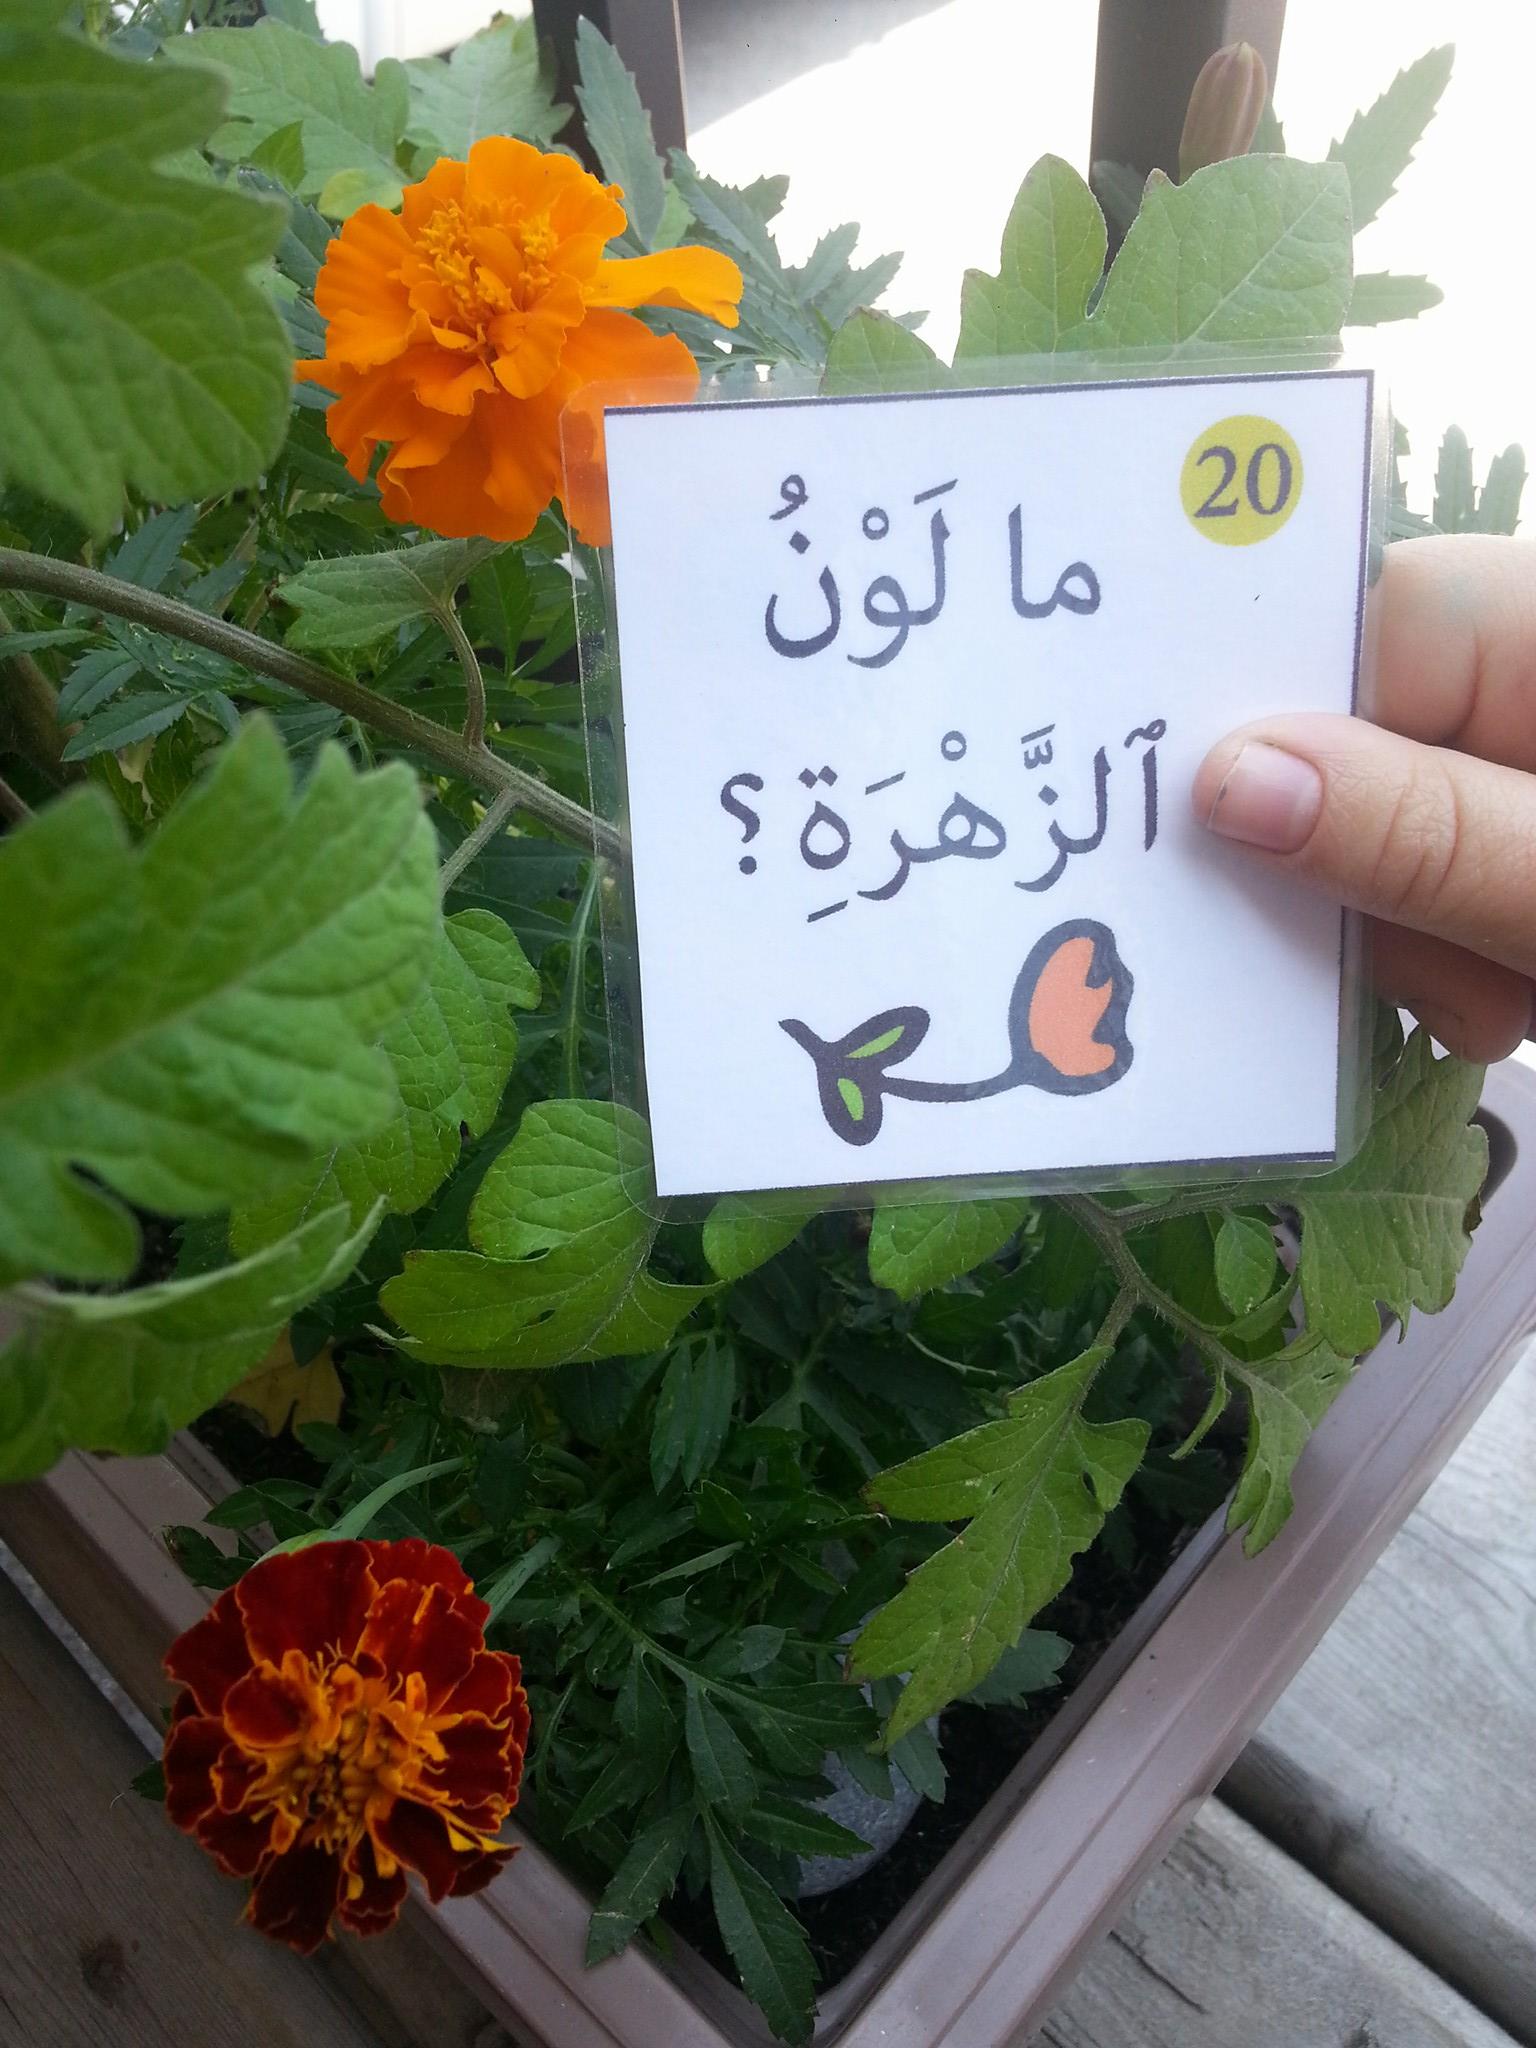 20
ما لَوْنُ
ٱلزَّهْرَةِ؟